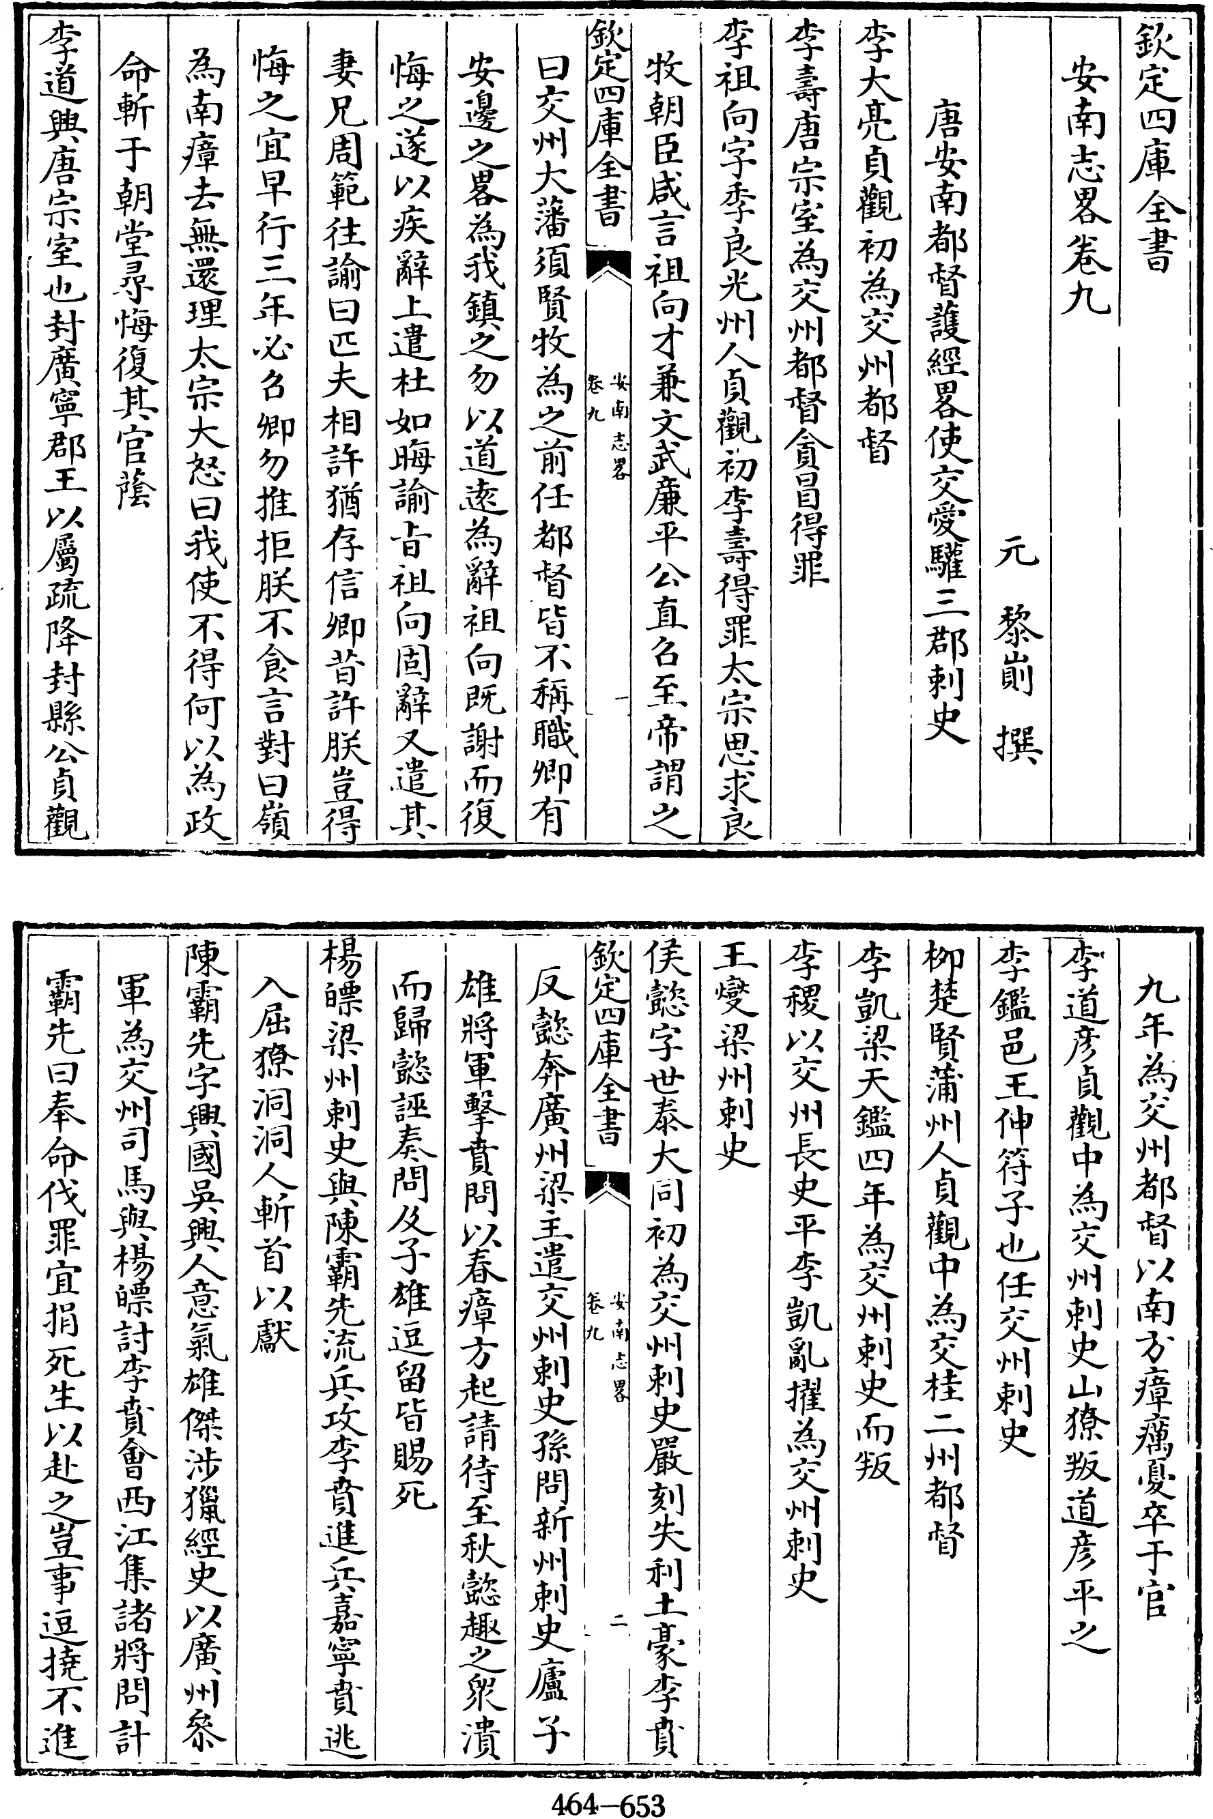 欽定四庫全書
安南志畧卷九
元　黎崱　撰
唐安南都督護經畧使交愛驩三郡刺史
李大亮貞觀初為交州都督
李壽唐宗室為交州都督貪冒得罪
李祖向字季良光州人貞觀初李壽得罪太宗思求良
牧朝臣咸言祖向才兼文武廉平公直召至帝謂之
欽定四庫全書
安南志畧
卷九
一
曰交州大藩須賢牧為之前任都督皆不稱職卿有
安邊之畧為我鎮之勿以道遠為辭祖向既謝而復
悔之遂以疾辭上遣杜如晦諭旨祖向固辭又遣其
妻兄周範往諭曰匹夫相許猶存信卿昔許朕豈得
悔之宜早行三年必召卿勿推拒朕不食言對曰嶺
為南瘴去無還理太宗大怒曰我使不得何以為政
命斬于朝堂尋悔復其官蔭
李道興唐宗室也封廣寧郡王以屬疏降封縣公貞觀
九年為交州都督以南方瘴癘憂卒于官
李道彥貞觀中為交州刺史山獠叛道彥平之
李鑑邑王伸符子也任交州刺史
柳楚賢蒲州人貞觀中為交桂二州都督
李凱梁天鑑四年為交州刺史而叛
李稷以交州長史平李凱亂擢為交州刺史
王燮梁州刺史
侯懿字世泰大同初為交州刺史嚴刻失利土豪李賁
欽定四庫全書
安南志畧
卷九
二
反懿奔廣州梁主遣交州刺史孫問新州刺史廬子
雄將軍擊賁問以春瘴方起請待至秋懿趣之衆潰
而歸懿誣奏問及子雄逗留皆賜死
楊㬓梁州刺史與陳霸先流兵攻李賁進兵嘉寧賁逃
入屈獠洞洞人斬首以獻
陳霸先字興國吳興人意氣雄傑涉獵經史以廣州叅
軍為交州司馬與楊㬓討李賁會西江集諸將問計
霸先曰奉命伐罪宜捐死生以赴之豈事逗撓不進
464—653